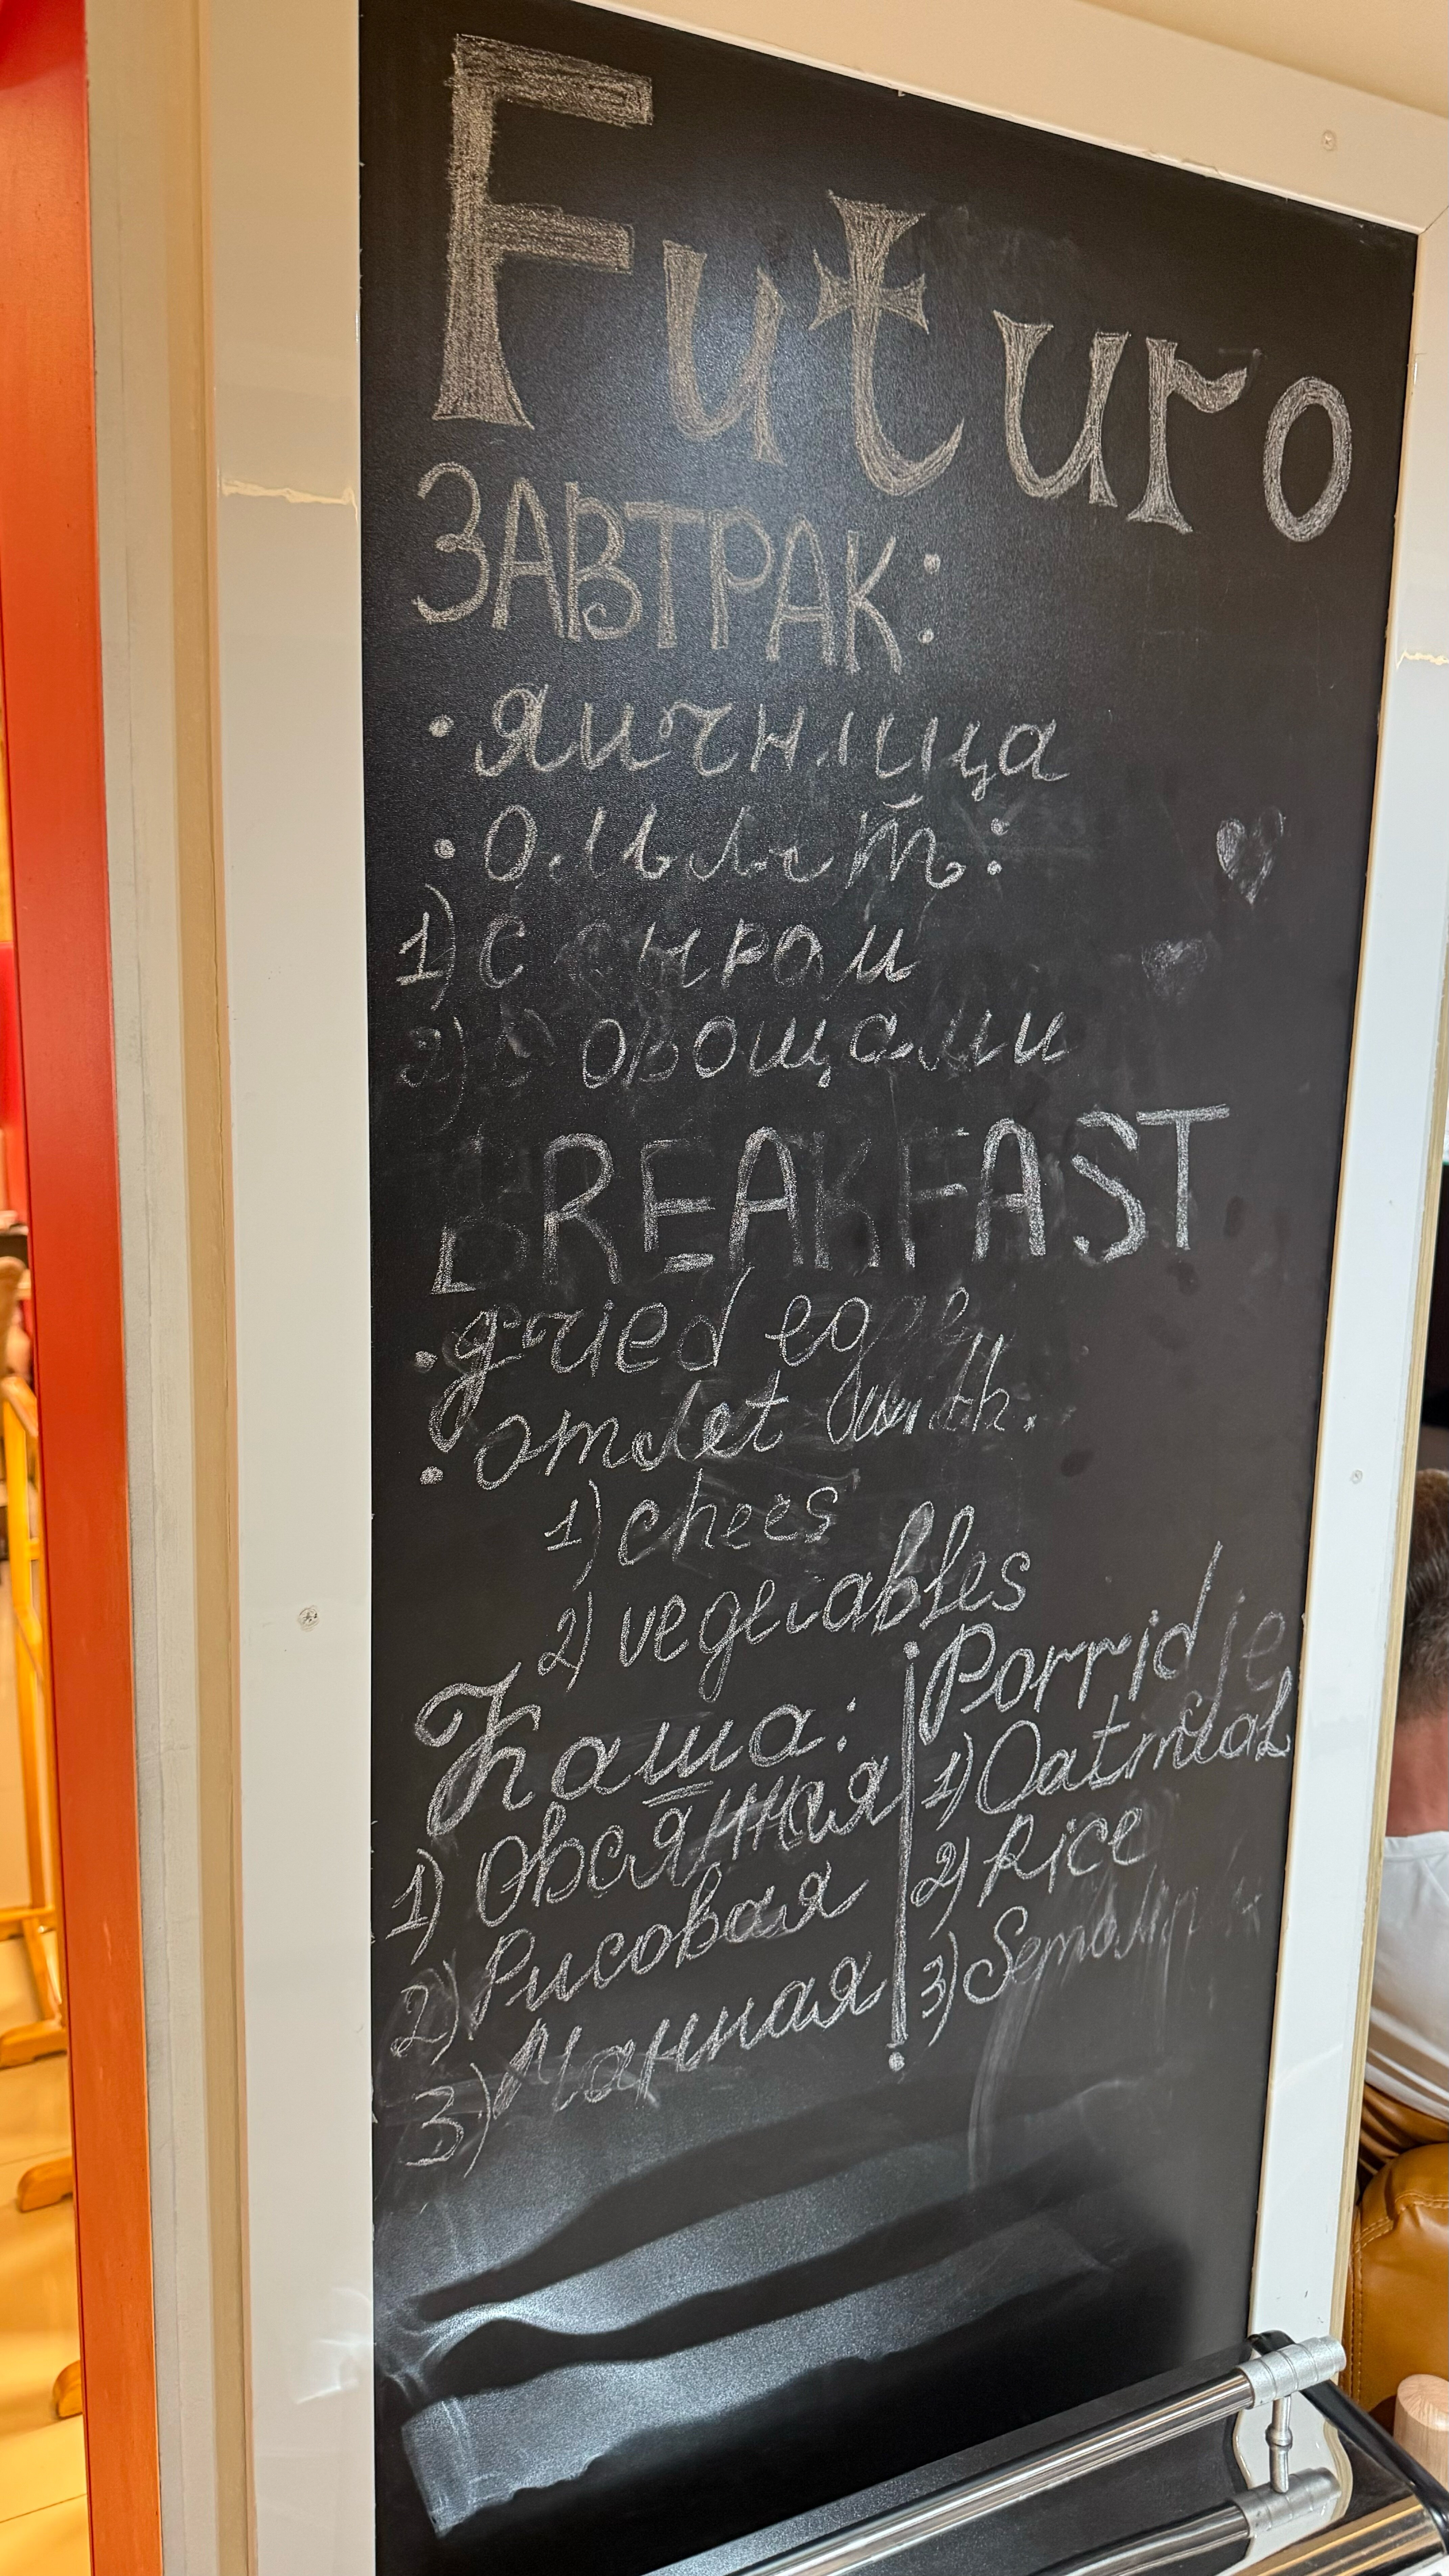 Futuro
ЗАВТРАК:
• яичница
• Омлет:
1) С сыром
2) С овощами
BREAKFAST
• fried eggs
• omelet with.
1) chees
2) vegetables
Каша:
1) Овсянная
2) Рисовая
3) Манная
Porridje
1) Oatmeal
2) Rice
3) Semolina